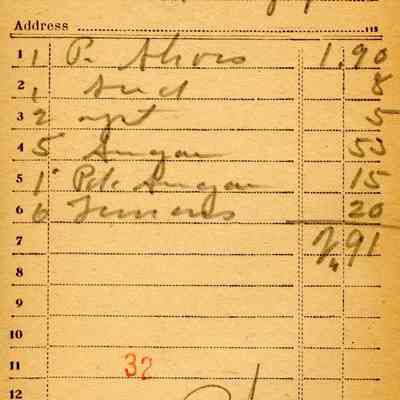 Address
1 1 P. Shoes 1.90
2 1 8
3 2 5
4 5 Sugar 53
5 1 Pd. Sugar 15
6 6 Lemons 20
7 2,91
8
9
10
11 32
12